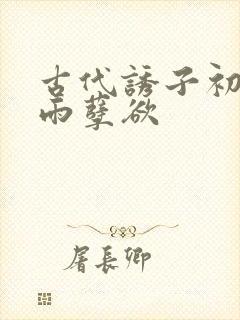 古代誘子初
雨孽欲
屠長卿